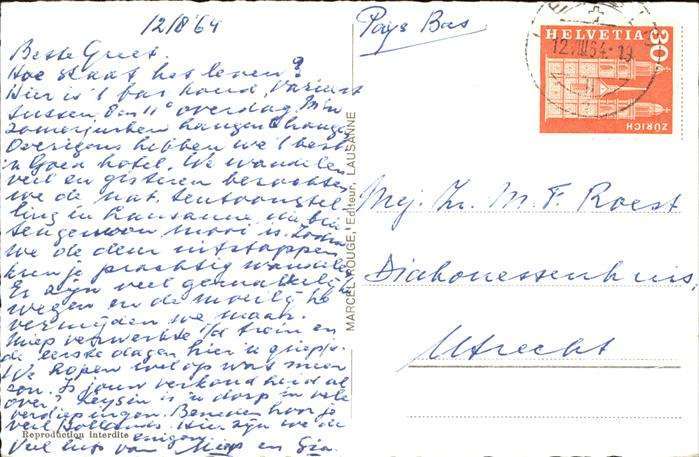 12/8 '64
Beste Greet.
Hoe staat het leven?
Hier is 't bar koud, Varieert
tussen 8 en 11° overdag. M'n
zomerjurken hangen & hangen
Overigens hebben we 't best
'n Goed hotel. We wandelen
veel en gisteren bezochten
we de nat. tentoonstel
ling in Lausanne die
tengewoon mooi is. Zodra
we de deur uitstappen
kun je prachtig wandelen
Er zijn veel gemakkelijke
wegen en de moeilijke
vermijden we maar.
Miep verwerkte i/d trein en
de eerste dagen hier 'n griepje.
We hopen wel op wat meer
zon. Is jouw verkoudheid al
over? Leysin is 'n dorp in vele
verdiepingen. Beneden hoor je
veel Hollands. Hier zijn we de
enigen
Veel liefs van Miep en Sia.
Reproduction interdite
MARCEL ROUGE, Editeur, LAUSANNE
Pays Bas
HELVETIA
30
ZÜRICH
12.VIII.64.19
Mej. Zr. M. F. Roest
Diakonessenhuis,
Utrecht